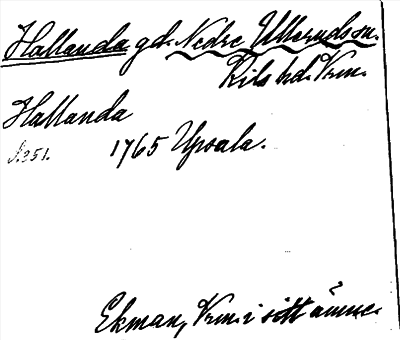 Hallanda gd. Nedre Ulleruds sn.
Kils hd. Vrm.
Hallanda
S. 251. 1765 Upsala.
Ekman, Vrm. i sitt ämne.